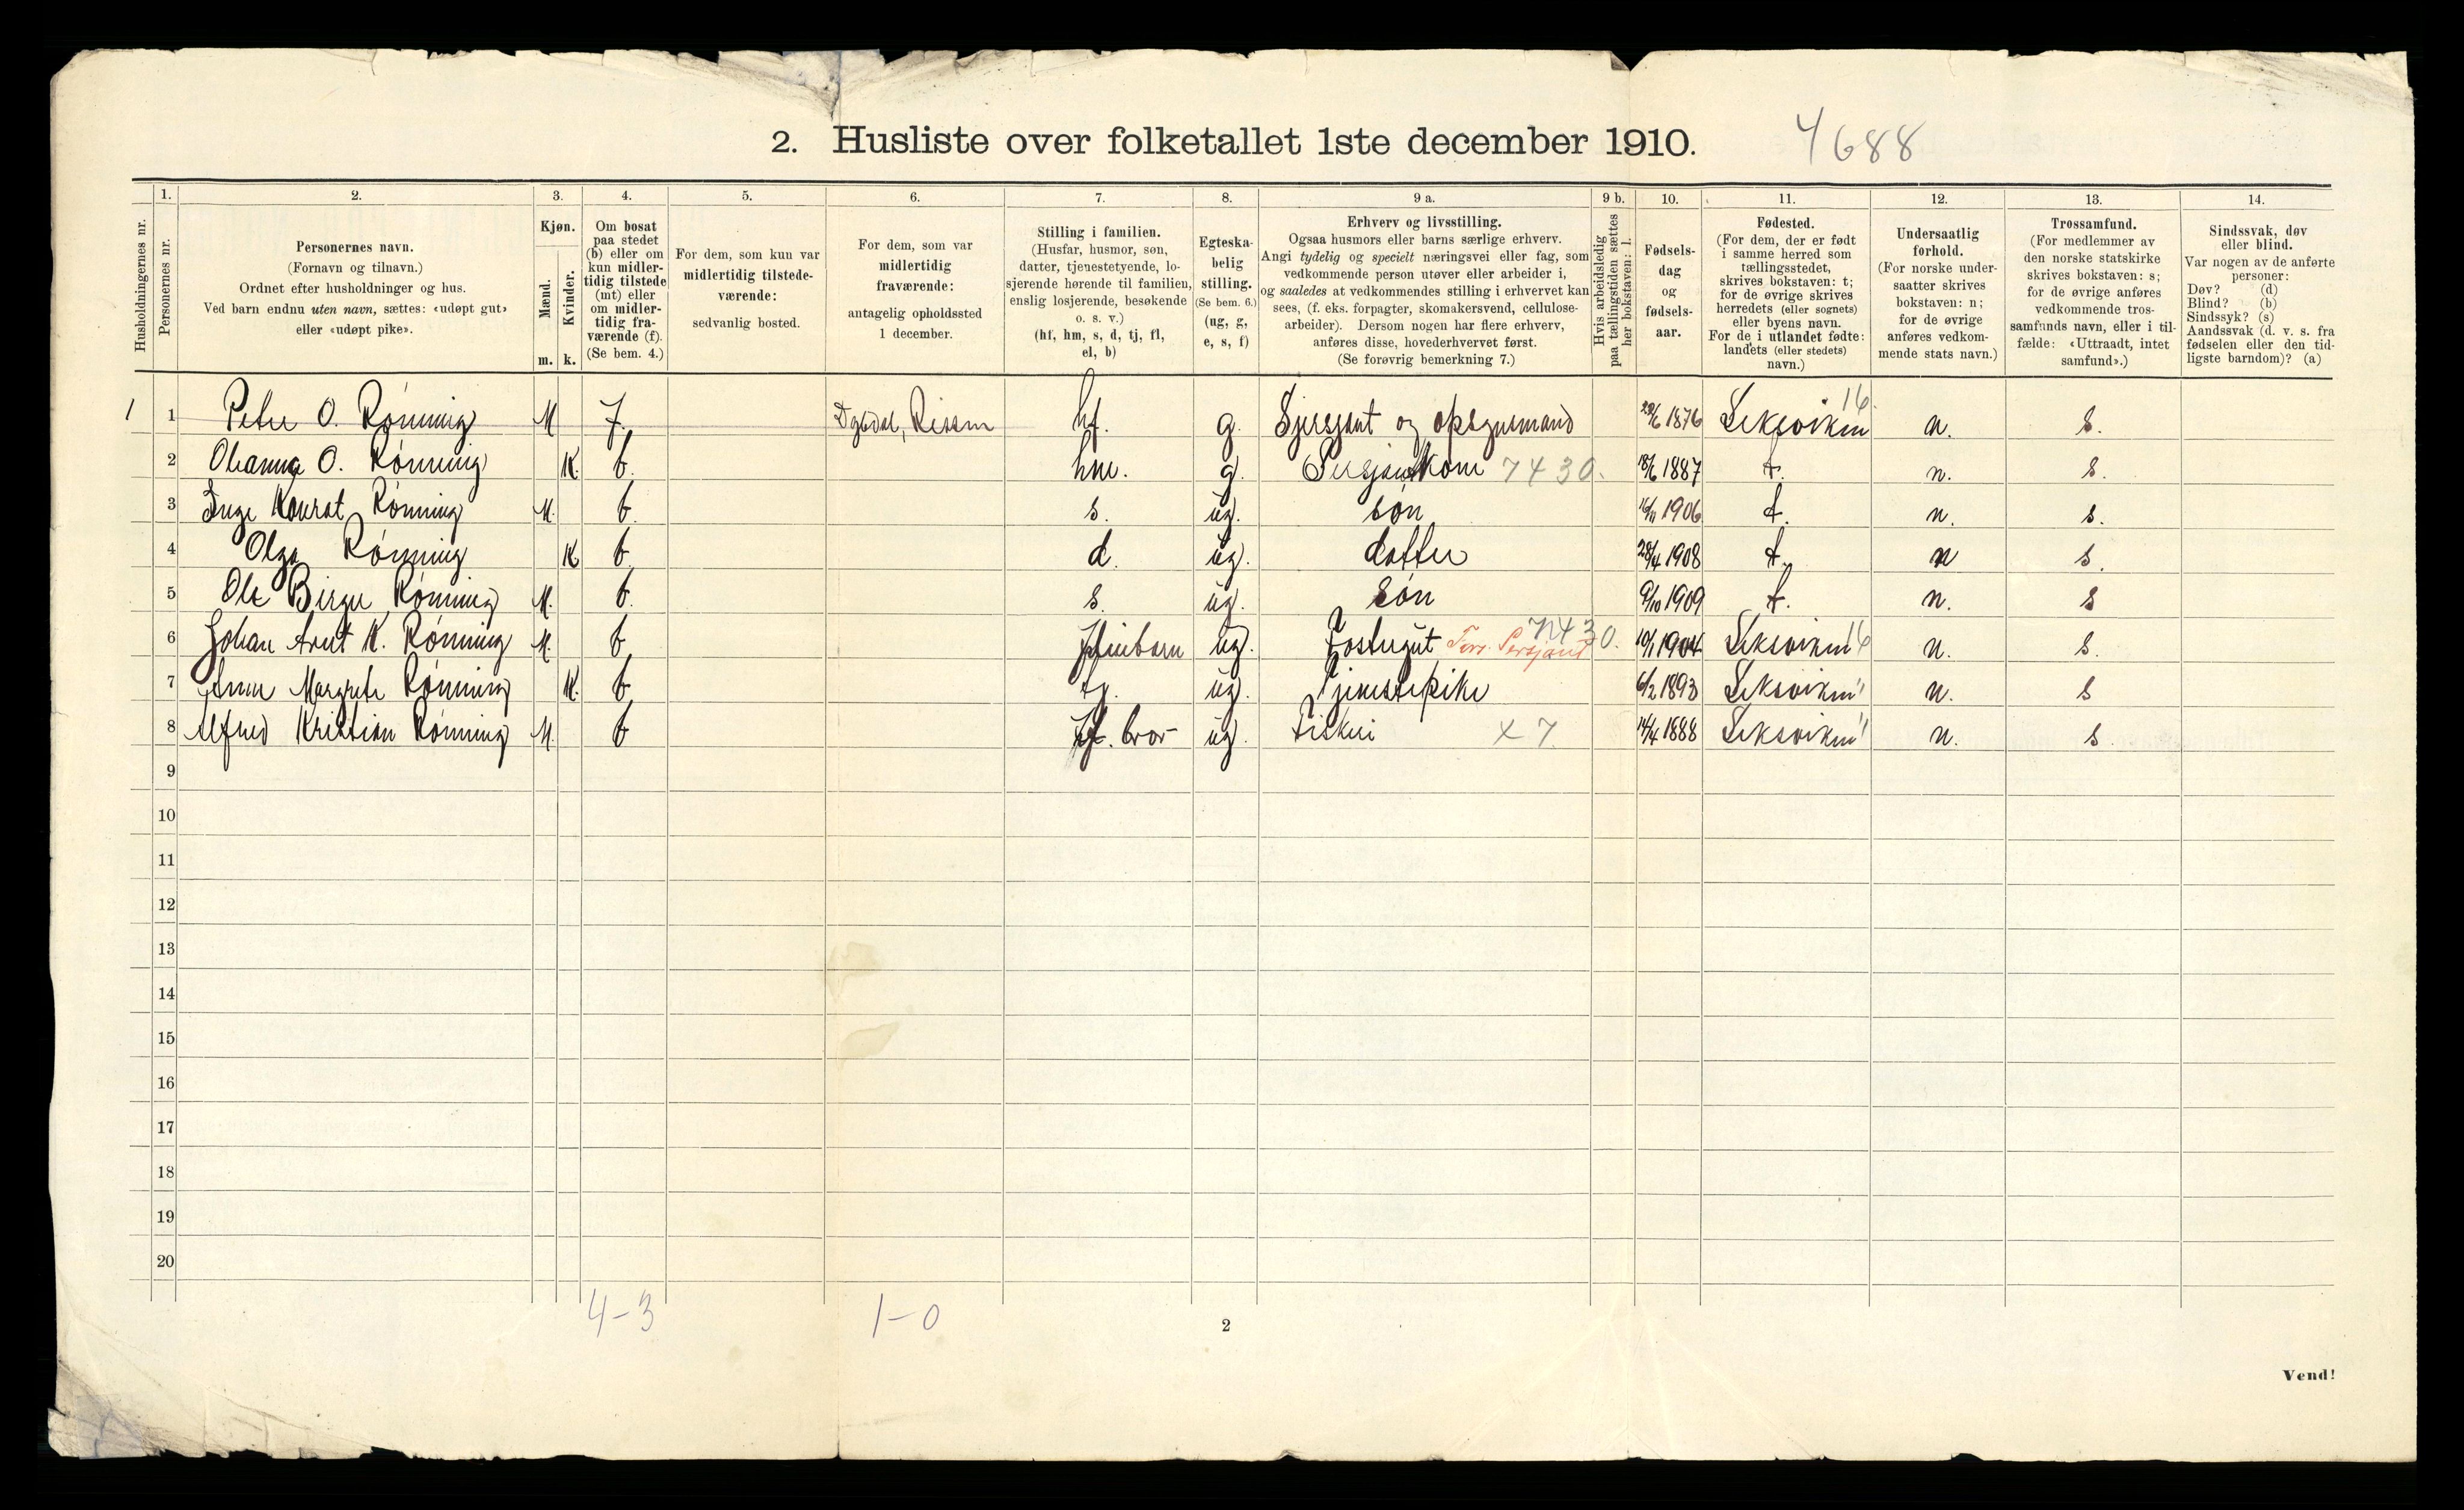 2. Husliste over folketallet 1ste december 1910. 4688
Husholdningernes nr.
1. Personernes nr.
2. Personernes navn. (Fornavn og tilnavn.) Ordnet efter husholdninger og hus. Ved barn endnu uten navn, sættes: «udøpt gut» eller «udøpt pike».
3. Kjøn. Mænd. m. Kvinder. k.
4. Om bosat paa stedet (b) eller om kun midlertidig tilstede (mt) eller om midlertidig fraværende (f). (Se bem. 4.)
5. For dem, som kun var midlertidig tilstedeværende: sedvanlig bosted.
6. For dem, som var midlertidig fraværende: antagelig opholdssted 1 december.
7. Stilling i familien. (Husfar, husmor, søn, datter, tjenestetyende, losjerende hørende til familien, enslig losjerende, besøkende o. s. v.) (hf, hm, s, d, tj, fl, el, b)
8. Egteskabelig stilling. (Se bem. 6.) (ug, g, e, s, f)
9 a. Erhverv og livsstilling. Ogsaa husmors eller barns særlige erhverv. Angi tydelig og specielt næringsvei eller fag, som vedkommende person utøver eller arbeider i, og saaledes at vedkommendes stilling i erhvervet kan sees, (f. eks. forpagter, skomakersvend, cellulosearbeider). Dersom nogen har flere erhverv, anføres disse, hovederhvervet først. (Se forøvrig bemerkning 7.)
9 b. Hvis arbeidsledig paa tællingstiden sættes her bokstaven: l.
10. Fødselsdag og fødselsaar.
11. Fødested. (For dem, der er født i samme herred som tællingsstedet, skrives bokstaven: t; for de øvrige skrives herredets (eller sognets) eller byens navn. For de i utlandet fødte: landets (eller stedets) navn.)
12. Undersaatlig forhold. (For norske undersaatter skrives bokstaven: n; for de øvrige anføres vedkommende stats navn.)
13. Trossamfund. (For medlemmer av den norske statskirke skrives bokstaven: s; for de øvrige anføres vedkommende trossamfunds navn, eller i tilfælde: «Uttraadt, intet samfund».)
14. Sindssvak, døv eller blind. Var nogen av de anførte personer: Døv? (d) Blind? (b) Sindssyk? (s) Aandssvak (d. v. s. fra fødselen eller den tidligste barndom)? (a)
1 1 Peter O. Rønning M f. Rissen hf. g. Sjersjant og opsynsmand 1876 Leksviken 16 n. s.
2 Ohanna O. Rønning K. b. hm. g. Sersjantkone 7430. 18/6 1887 t. n. s.
3 Inge Konrat Rønning M. b. s. ug. søn 16/11 1906 t. n. s.
4 Olga Rønning K b. d. ug. datter 28/4 1908 t. n s.
5 Ole Birger Rønning M. b. s. ug. søn 9/10 1909 t. n. s
6 Johan Arnt K. Rønning M. b. ug. Fostergut Fors. Sersjant 7430. 10/1 1904 Leksviken 16 n. s.
7 Anna Margrete Rønning K. b. tj. ug. Tjenestepike 6/2 1893 Leksviken " n. s
8 Alfred Kristian Rønning M. b hf. bror ug. Fisker x 7 14/4 1888 Leksviken " n. s.
9
10
11
12
13
14
15
16
17
18
19
20
4-3 1-0
2
Vend!